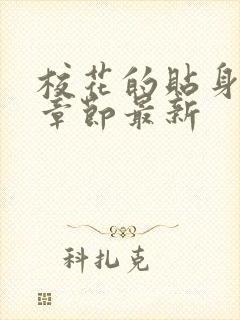 校花的贴身
章节最新
科扎克